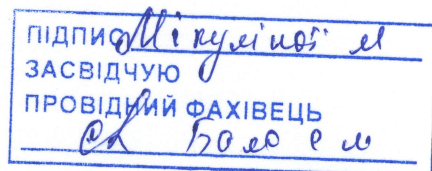 ПІДПИС Мікуліної М
ЗАСВІДЧУЮ
ПРОВІДНИЙ ФАХІВЕЦЬ